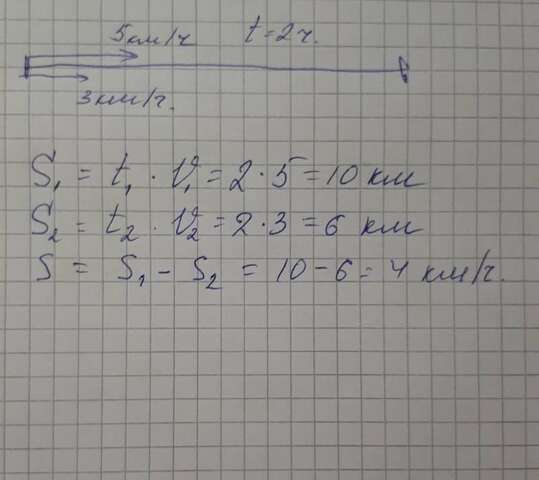 5км/ч t=2ч.
3км/ч.
S₁ = t₁ · V₁ = 2·5 = 10 км
S₂ = t₂ · V₂ = 2·3 = 6 км
S = S₁ - S₂ = 10-6 = 4 км/ч.